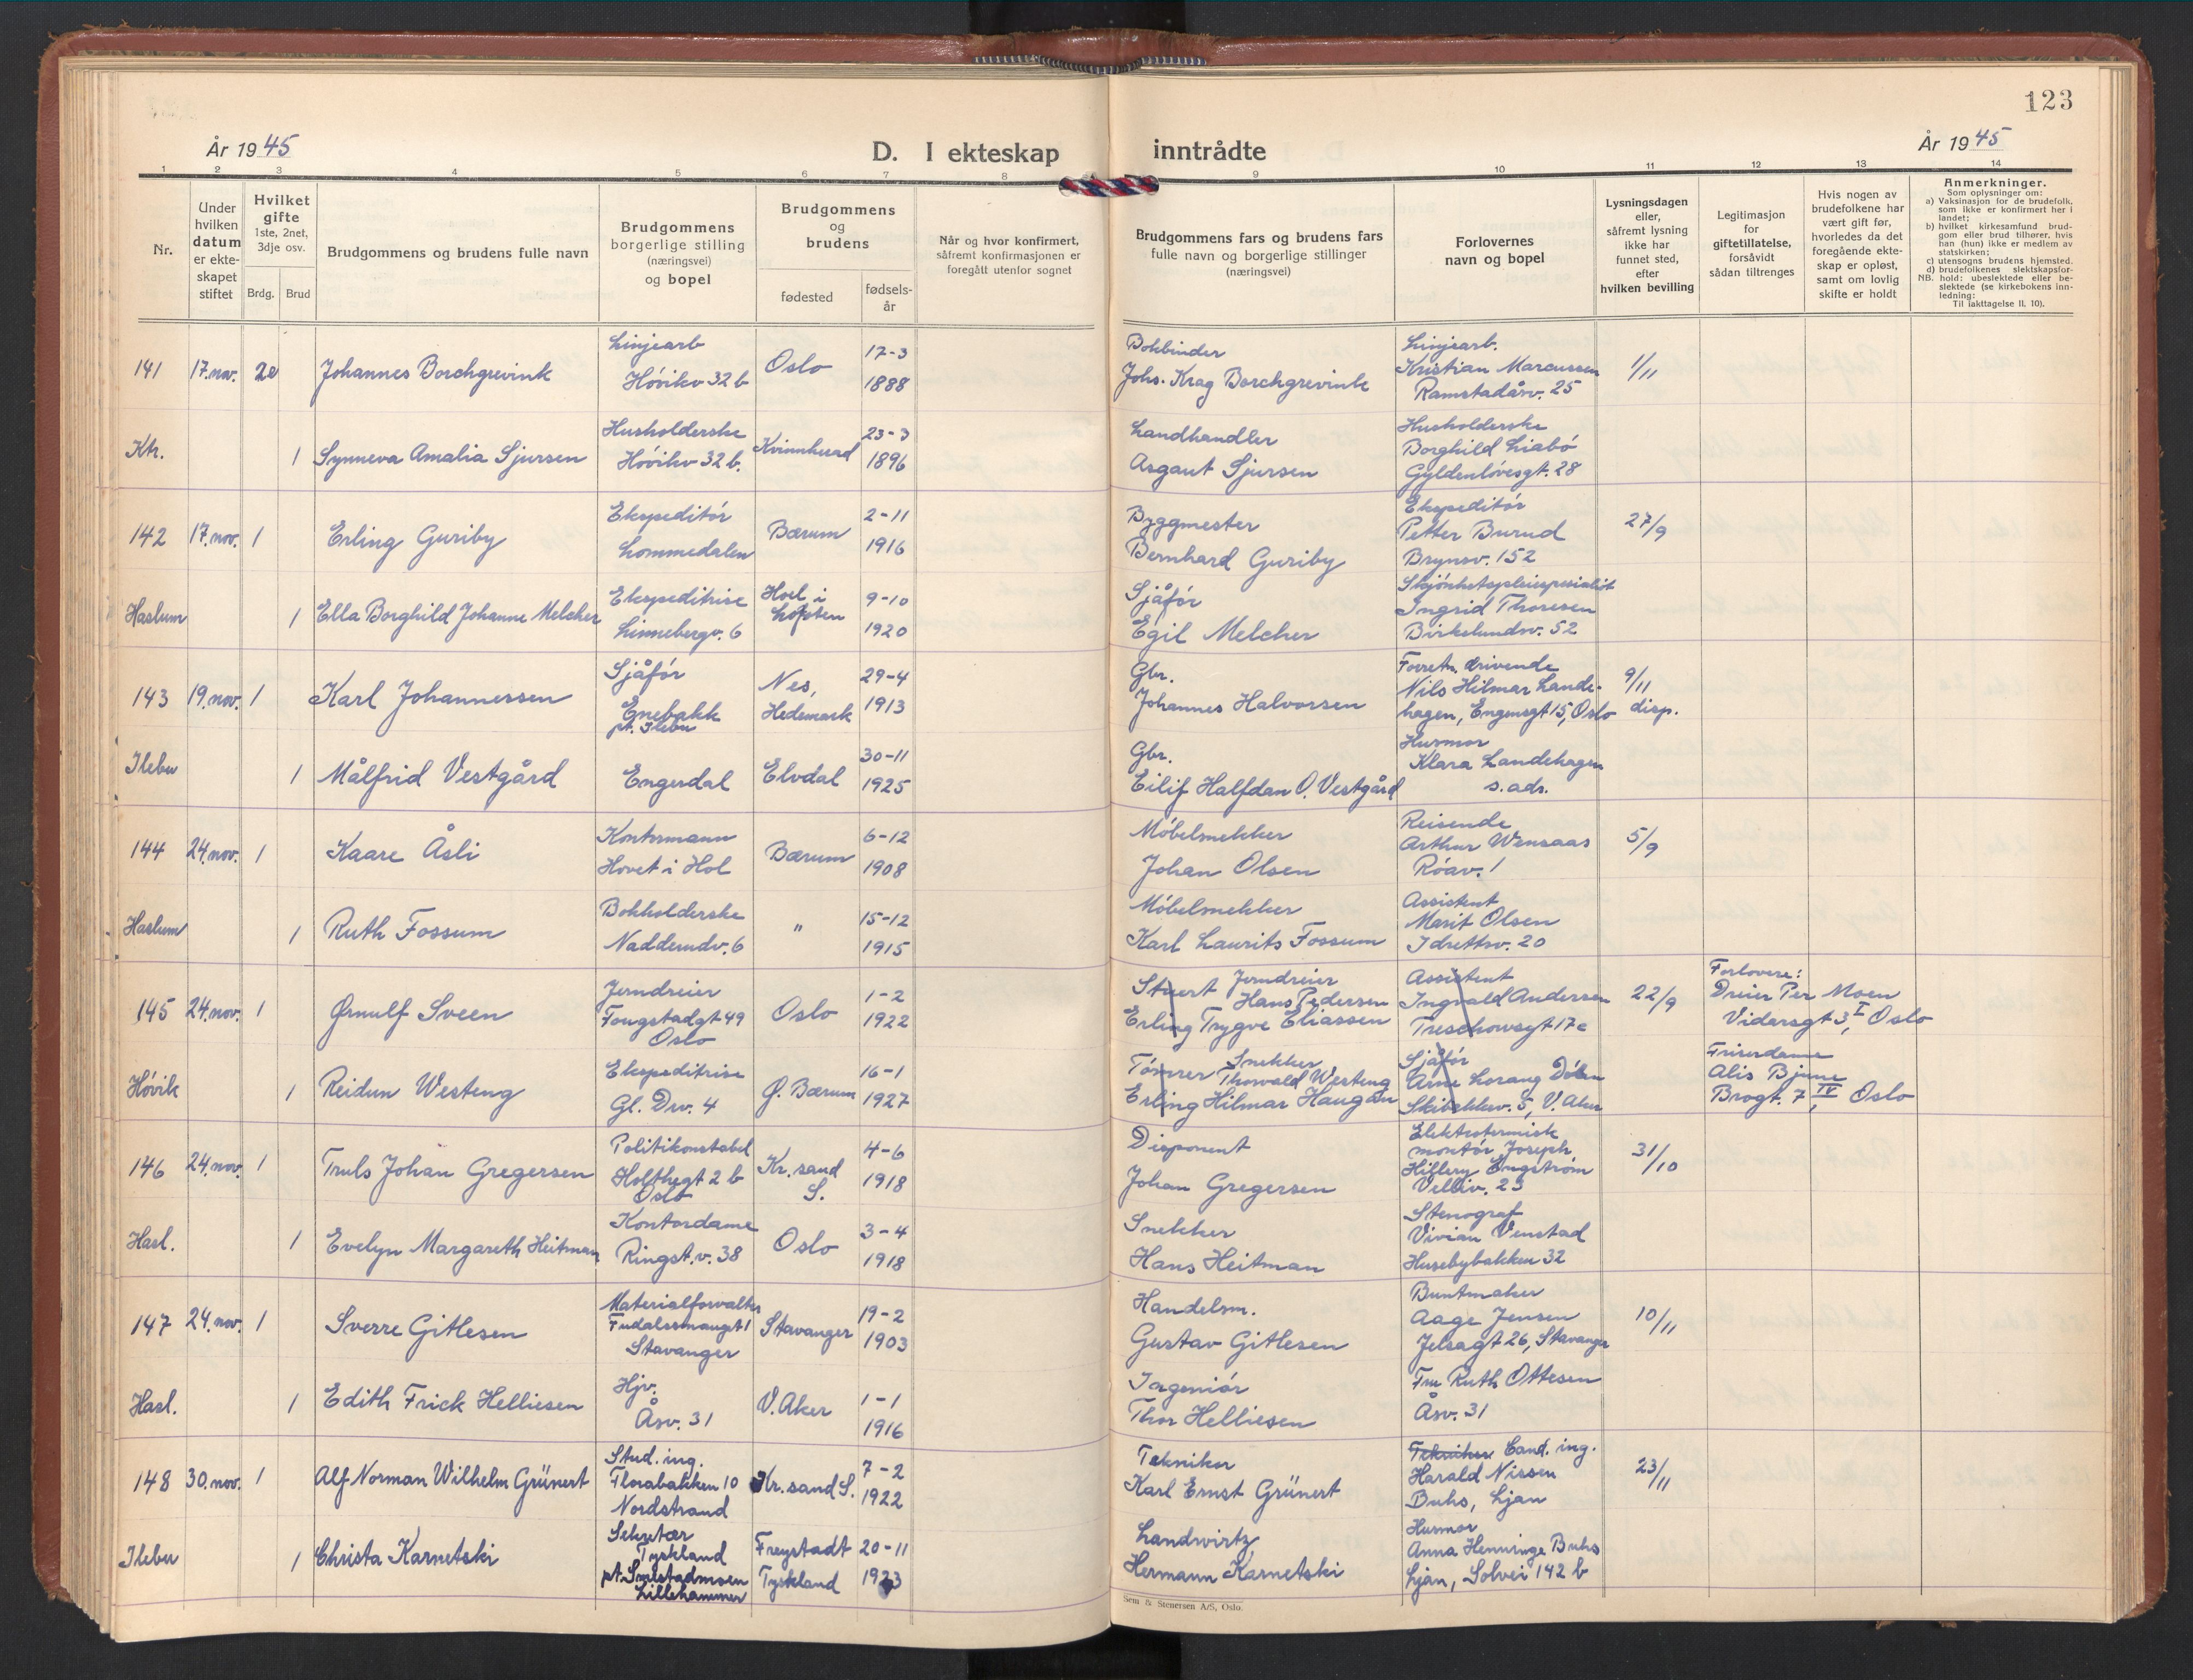 123
År 1945
D. I ekteskap inntrådte
År 1945
1 2 3 4 5 6 7 8 9 10 11 12 13 14
Nr.
Under hvilken datum er ekteskapet stiftet
Hvilket gifte 1ste, 2net, 3dje osv.
Brdg. Brud
Brudgommens og brudens fulle navn
Brudgommens borgerlige stilling (næringsvei) og bopel
Brudgommens og brudens
fødested
fødselsår
Når og hvor konfirmert, såfremt konfirmasjonen er foregått utenfor sognet
Brudgommens fars og brudens fars fulle navn og borgerlige stillinger (næringsvei)
Forlovernes navn og bopel
Lysningsdagen eller, såfremt lysning ikke har funnet sted, efter hvilken bevilling
Legitimasjon for giftetillatelse, forsåvidt sådan tiltrenges
Hvis nogen av brudefolkene har vært gift før, hvorledes da det foregående ekteskap er opløst, samt om lovlig skifte er holdt
Anmerkninger.
Som oplysninger om:
a) Vaksinasjon for de brudefolk, som ikke er konfirmert her i landet;
b) hvilket kirkesamfund brudgom eller brud tilhører, hvis han (hun) ikke er medlem av statskirken;
c) utensogns brudens hjemsted.
d) brudefolkenes slektskapsforhold: ubeslektede eller beslektede (se kirkebokens innledning:
NB.
Til iakttagelse II. 10).
141 17. nov. 2e Johannes Borchgrevink
Linjearb
Høvikv 32 b
Oslo
17-3
1888
Bokbinder
Johs. Krag Borchgrevink
Linjearb.
Kristian Marcussen
Ramstadåsv. 25
1/11
Ktr. 1 Synneva Amalia Sjursen
Husholderske
Høvikv 32 b.
Kvinnherad
23-3
1896
Landhandler
Asgaut Sjursen
Husholderske
Borghild Liabø
Gyldenløvesgt. 28
142 17. nov. 1 Erling Guriby
Ekspeditør
Lommedalen
Bærum
2-11
1916
Byggmester
Bernhard Guriby
Ekspeditør
Petter Burud
Brynsv. 152
27/9
Haslum 1 Ella Borghild Johanne Melcher
Ekspeditrise
Linnebergv. 6
Hoel i
9-10
1920
Sjåfør
Egil Melcher
Skjønhetspleiespesialist
Ingrid Thoresen
Birkelundsv. 52
143 19. nov. 1 Karl Johannessen
Sjåfør
Enebakk
pt. Ilebu
Nes,
Hedemark
29-4
1913
Gbr.
Johannes Halvorsen
Forretn. drivende
Nils Hilmar Lande-
hagen, Engensgt 15, Oslo
9/11
disp.
Ilebu 1 Målfrid Vestgård
Engerdal
Elvdal
30-11
1925
Gbr.
Eilif Halfdan O. Vestgård
Husmor
Klara Landehagen
s. adr.
144 24. nov. 1 Kaare Åsli
Kontormann
Hovet i Hol
Bærum
6-12
1908
Møbelsnekker
Johan Olsen
Reisende
Arthur Wensaas
Røav. 1
5/9
Haslum 1 Ruth Fossum
Bokholderske
Nadderudv. 6
"
15-12
1915
Møbelsnekker
Karl Laurits Fossum
Assistent
Marit Olsen
Idrettsv. 20
145 24. nov. 1 Ørnulf Sveen
Jerndreier
Fougstadgt 49
Oslo
Oslo
1-2
1922
Stuert Jerndreier
Hans Pedersen
Erling Trygve Eliassen
Assistent
Ingvald Andersen
Treschowsgt 17c
22/9
Forlovere:
Dreier Per Moen
Vidarsgt 3, I Oslo
Høvik 1 Reidun Westeng
Ekspeditrise
Gl. Drv. 4
Ø. Bærum
16-1
1927
Tømrer Snekker
Thorvald Westeng
Erling Hilmar Haugan
Sjåfør
Arne Lorang
Skibakkev. 5, V. Aker
Friserdame
Alis Bjune
Brogt. 7 IV, Oslo
146 24. nov. 1 Truls Johan Gregersen
Politikonstabel
Holthegt 2 b
Oslo
Kr. sand
S.
4-6
1918
Disponent
Johan Gregersen
Elektrotermisk
montør Joseph
Hillery Engstrøm
Velliv. 23
31/10
Hasl. 1 Evelyn Margareth Heitman
Kontordame
Ringst.v. 38
Oslo
3-4
1918
Snekker
Hans Heitman
Stenograf
Vivian Venstad
Husebybakken 32
147 24. nov. 1 Sverre Gitlesen
Materialforvalter
Stavanger
Stavanger
19-2
1903
Handelsm.
Gustav Gitlesen
Buntmaker
Aage Jensen
Jelsagt 26, Stavanger
10/11
Hasl. 1 Edith Frick Helliesen
Hjv.
Åsv. 31
V. Aker
1-1
1916
Ingeniør
Thor Helliesen
Fru Ruth Ottesen
Åsv. 31
148 30. nov. 1 Alf Norman Wilhelm Grünert
Stud. ing.
Florabakken 10
Nordstrand
Kr. sand S.
7-2
1922
Tekniker
Karl Ernst Grünert
Tekniker Cand. ing.
Harald Nissen
Buhs, Ljan
23/11
Ilebu 1 Christa Karnetski
Sekretær
Tyskland
pt. Smestadmoen
Lillehammer
Freystadt
Tyskland
20-11
1923
Landwirtz
Hermann Karnetski
Husmor
Anna Henninge Buhs
Ljan, Solvei 142 b
Sem & Stenersen A/S, Oslo.